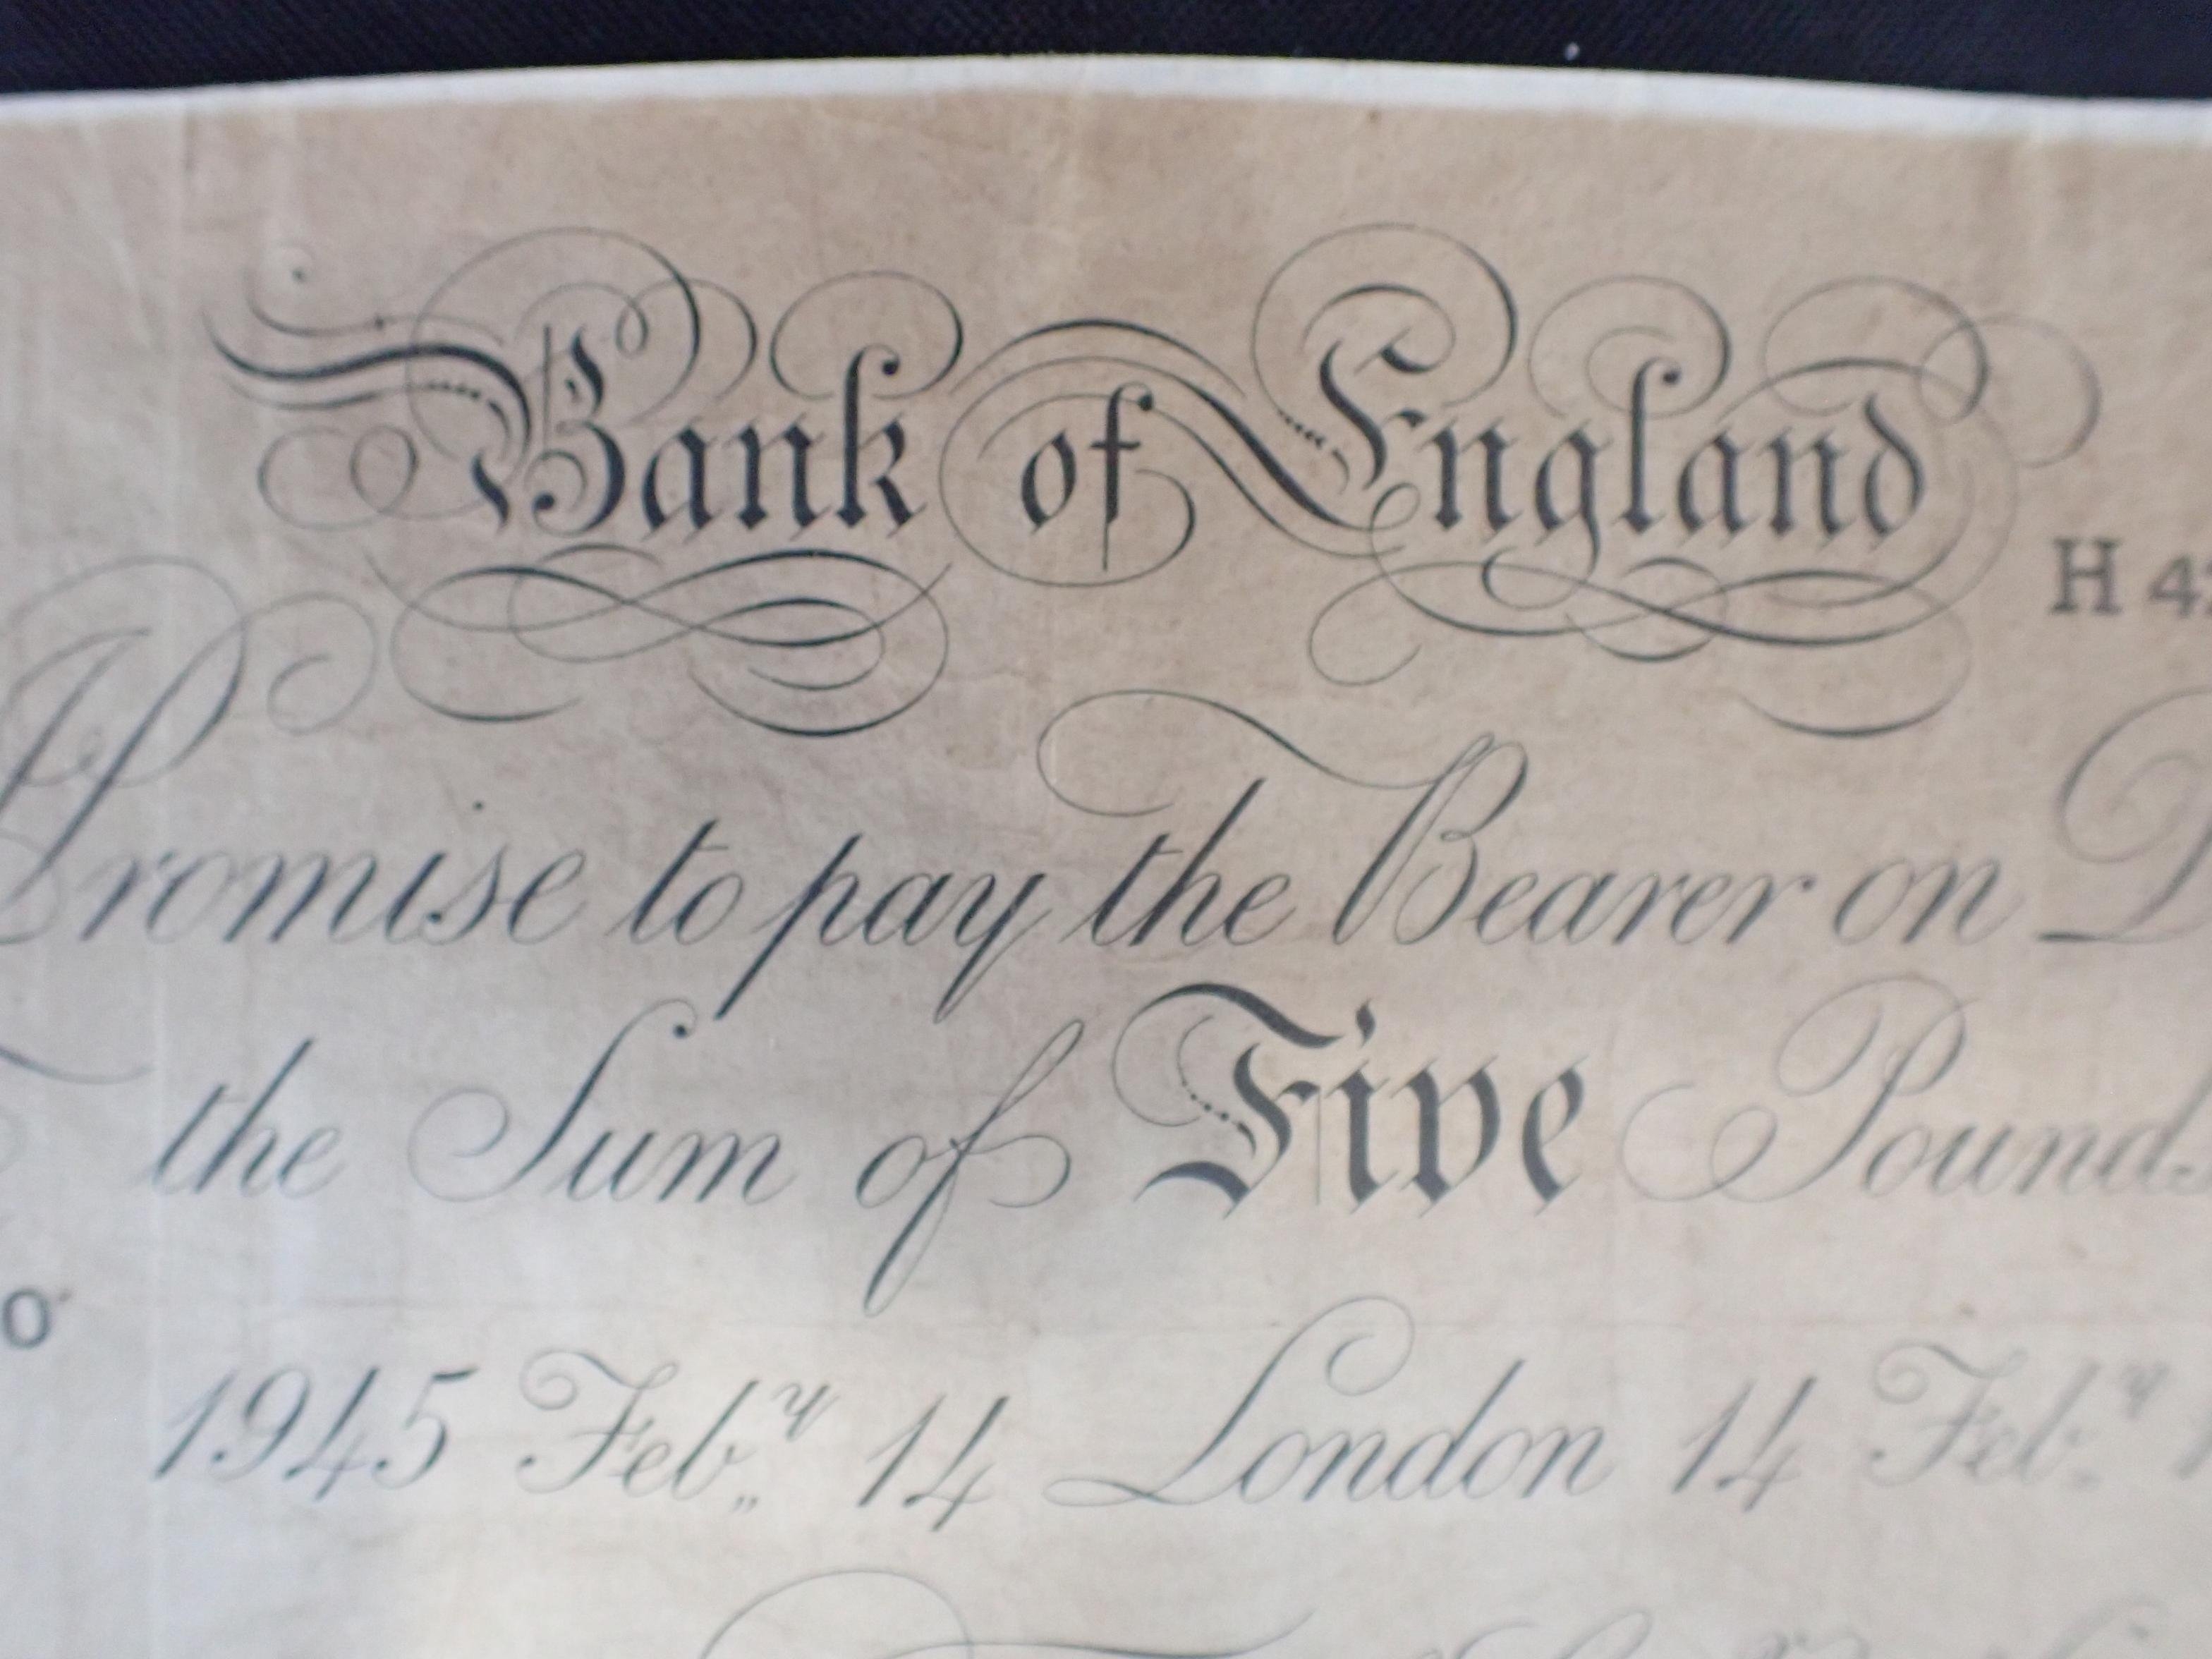 Bank of England
H 4
Promise to pay the Bearer on D
the Sum of Five Pounds
o
1945 Feb.y 14 London 14 Feb.y 1